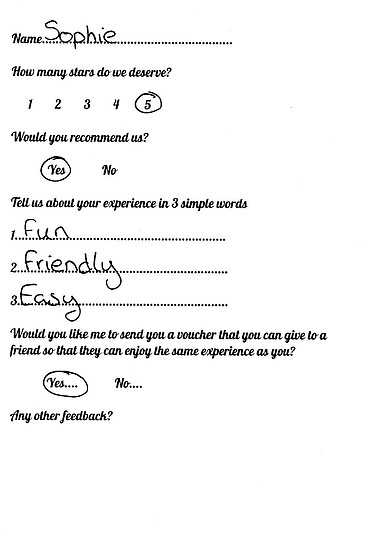 Name...Sophie..............................
How many stars do we deserve?
1 2 3 4 5
Would you recommend us?
Yes No
Tell us about your experience in 3 simple words
1. Fun..........................................
2. Friendly..............................
3. Easy........................................
Would you like me to send you a voucher that you can give to a
friend so that they can enjoy the same experience as you?
Yes.... No....
Any other feedback?